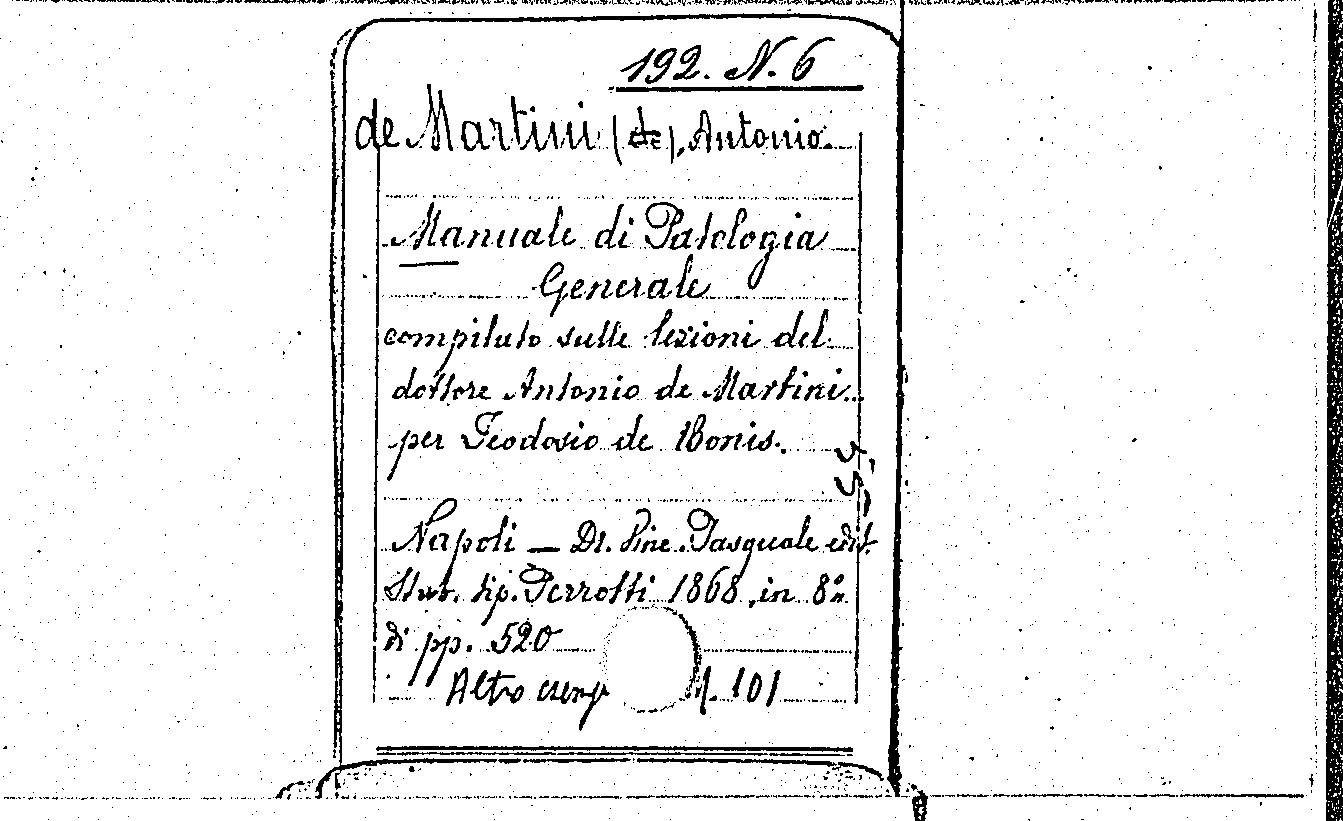 192. N. 6
de Martini (de), Antonio.
Manuale di Patologia
Generale
compilato sulle lezioni del
dottore Antonio de Martini
per Teodosio de Bonis.
Napoli — Dr. Vinc. Pasquale edit.
Stab. tip. Perrotti 1868, in 8º
di pp. 520
Altro 101